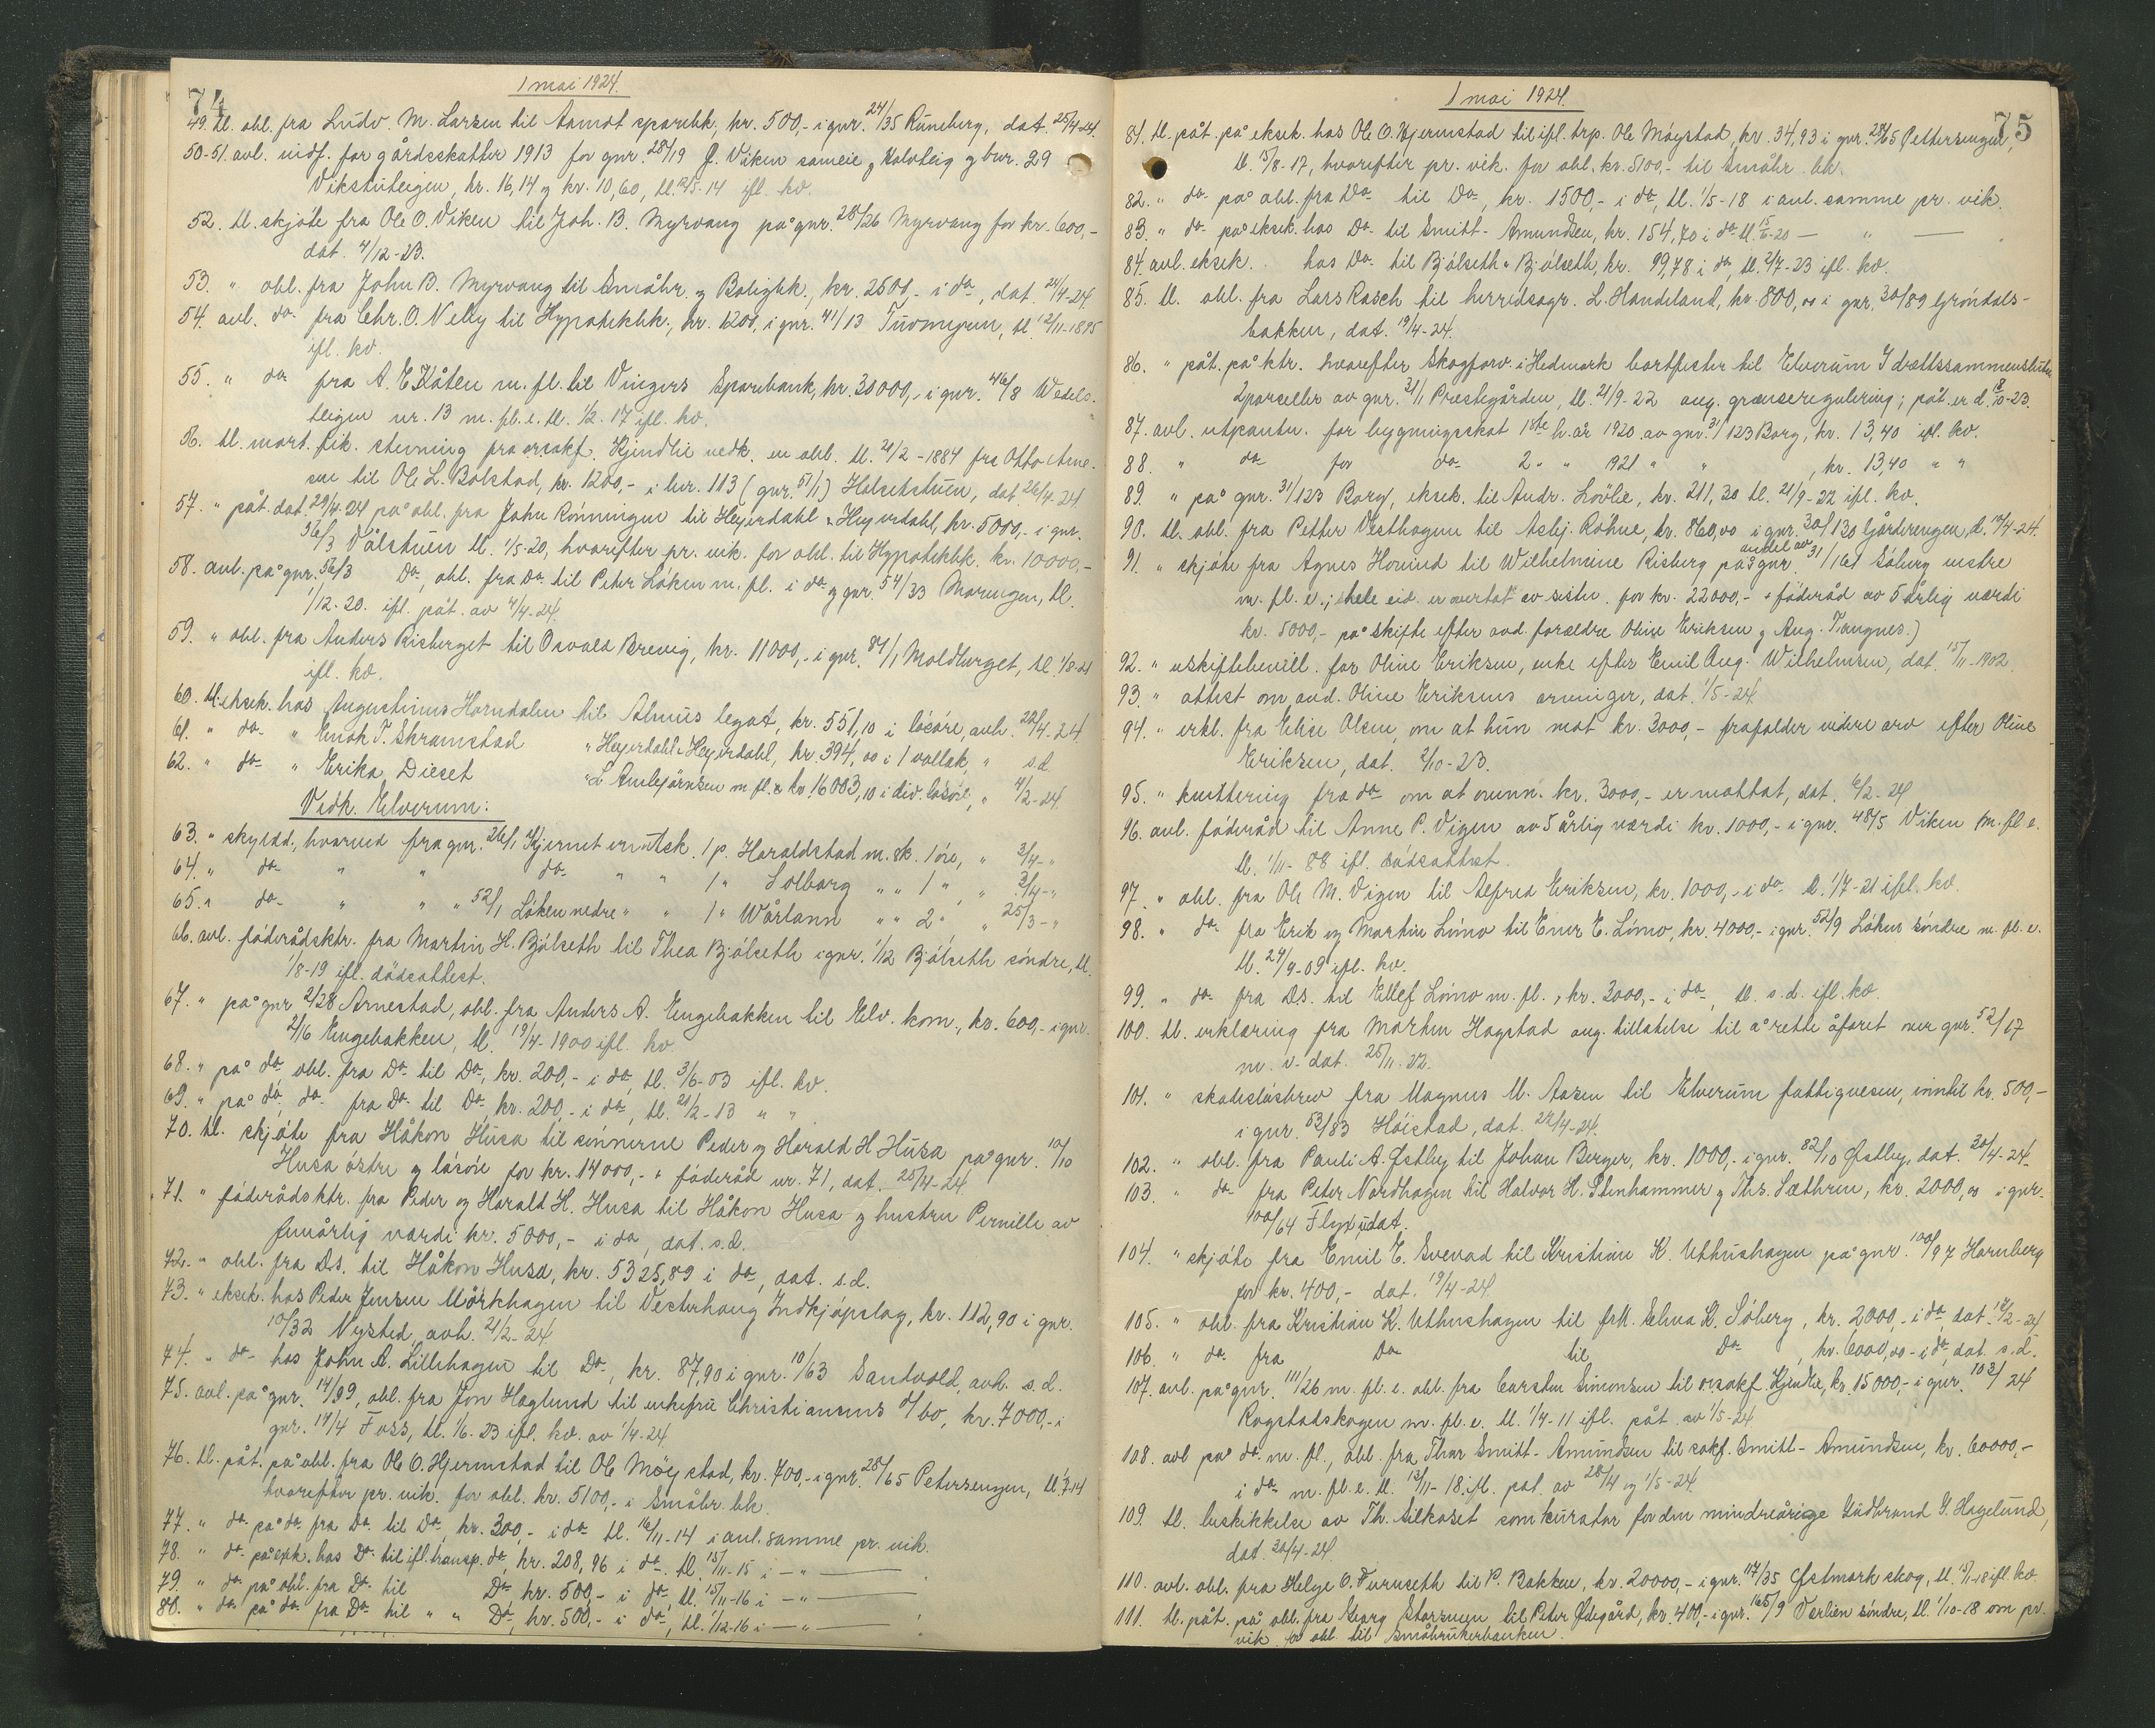 74
1 mai 1924.
49. tl. obl. fra Ludv. M. Larsen til Aamot sparebk, kr. 500,- i gnr. 24/35 Runeberg, dat. 25/4-24.
50-51. avl. utdf. for gårdsskatter 1913 for gnr. 28/19 J. Viken sameie og Kalvleig og bnr. 29
Vikstuteigen, kr. 16,14 og kr. 10,60, tl. -14 ifl. kv.
52. tl. skjöte fra Ole O. Viken til Joh. B. Myrvang på gnr. 28/26 Myrvang for kr. 600,-
dat. 4/12-23.
53. " obl. fra John B. Myrvang til Småbr. og Boligbk., kr. 2500,- i do, dat. 24/4-24
54. avl. do fra Chr. O. Nelly til Hypotekbk., kr. 1200, i gnr. 41/13 Tuvmyren, tl. 12/11-1895
ifl. kv.
55. " do fra A. E. Kåten m. fl. til Vingers Sparebank, kr. 30000,- i gnr. 46/8 Wedels-
teigen nr. 13 m. fl. e. tl. 1/2-17 ifl. kv.
56. tl. mort. fik. stevning fra orsakf. Kjindlie vedk. en obl. tl. 21/2-1884 fra Otto Arne-
sen til Ole L. Bolstad, kr. 1200,- i lnr. 113 (gnr. 51/1) Holsetstuen, dat. 26/4-24
57. " påt. dat. 29/4-24 på obl. fra John Rönningen til Heyerdahl & Heyerdahl, kr. 5000,- i gnr.
56/3 Vålstuen tl. 1/5-20, hvorefter pr. vik. for obl. til Hypotekbk. kr. 10000,-
58. avl. på gnr. 56/3 Do, obl. fra Do til Peter Löken m. fl. i do og gnr. 54/33 Moringen, tl.
1/12-20. ifl. påt. av 4/4-24.
59. " obl. fra Anders Risberget til Osvald Brevig, kr. 11000,- i gnr. 84/1 Moldberget, tl. 1/8-21
ifl. kv.
60. tl. eksek. hos Augustinus Horndalen til Almus legat, kr. 551,10 i lösöre, avh. 22/4-24
61. " do " Enok T. Skramstad " Heyerdahl & Heyerdahl, kr. 394,00 i 1 vallak, " s.d.
62. " do " Erika Dieset " L. Amlbjörnsen m. fl. kr. 16003,10 i div. lösöre, " 4/2-24
Vedk. Elverum:
63. " skyldd., hvorved fra gnr. 26/1 Kjernet er utsk. 1 p. Haraldstad m. sk. 1 öre, " 3/4- "
64. " do " " do " " 1 " Solborg " " 1 " , " 3/4- "
65. " do " " " 52/1 Löken nedre " " 1 " Wårtann " " 2 " , " 25/3- "
66. avl. föderådsktr. fra Martin H. Bjölseth til Thea Bjölseth i gnr. 1/12 Bjölseth söndre, tl.
1/8-19 ifl. dödsattest.
67. " på gnr. 2/28 Arnestad, obl. fra Anders A. Engebakken til Elv. kom., kr. 600,- i gnr.
2/16 Engebakken, tl. 19/4-1900 ifl. kv.
68. " på do obl. fra Do til Do, kr. 200,- i do, tl. 3/6-03 ifl. kv.
69. " på do, do fra Do til Do, kr. 200,- i do, tl. 21/2-13 " "
70. tl. skjöte fra Håkon Husa til sönnerne Peder og Harald H. Husa på gnr. 10/10
Husa östre og lösöre for kr. 14000,- + föderåd nr. 71, dat. 25/4-24
71. " föderådsktr. fra Peder og Harald H. Husa til Håkon Husa og hustru Pernille av
femårlig værdi kr. 5000,- i do, dat. s.d.
72. " obl. fra Ds. til Håkon Husa, kr. 5325,89 i do, dat. s.d.
73. " eksek. hos Peder Jensen Mörkhagen til Vesterhaug Indkjöpslag, kr. 112,90 i gnr.
10/32 Nysted, avh. 21/2-24
74. " do hos John A. Lillehagen til Do, kr. 87,90 i gnr. 10/63 Sandvold, avh. s.d.
75. avl. på gnr. 14/99, obl. fra Jon Haglund til enkefru Christiansens d/bo, kr. 7000,- i
gnr. 14/4 Foss, tl. 1/6-23 ifl. kv. av 1/4-24.
76. tl. påt. på obl. fra Ole O. Hjermstad til Ole Möystad, kr. 700,- i gnr. 28/65 Petersengen, tl.
hvorefter pr. vik. for obl. kr. 5100,- i Småbr. bk.
77. " do på do fra Do til Do kr. 300,- i do tl. 16/11-14 i anl. samme pr. vik.
78. " do på eksk. hos Do til ifl. transp. do, kr. 208,96 i do. tl. 15/11-15 i — " —
79. " do på obl. fra Do til Do kr. 500,- i do tl. 15/11-16 i — " —
80. " do på do fra Do til " " Do, kr. 500,- i do, tl. 1/12-16 i — " —
75
1 mai 1924.
81. tl. påt. på eksek. hos Ole O. Hjermstad til ifl. trp. Ole Möystad, kr. 34,93 i gnr. 28/65 Pettersengen,
tl. 15/8-17, hvorefter pr. vik. for obl. kr. 5100,- til Småbr. bk.
82. " do på obl. fra Do til Do, kr. 1500,- i do, tl. 1/5-18 i anl. samme pr. vik.
83. " do på eksek. hos Do til Smitt-Amundsen, kr. 154,70 i do tl. -20 — " —
84. avl. eksek. hos Do til Bjölseth & Bjölseth, kr. 99,78 i do, tl. 2/7-23 ifl. kv.
85. tl. obl. fra Lars Rasch til herredsagr. L. Handeland, kr. 800,00 i gnr. 30/89 Gröndals-
bakken, dat. 19/4-24.
86. " påt. på ktr. hvorefter Skogforv. i Hedmark bortfester til Elverum Idrættssammenslutn.
2 parseller av gnr. 31/1 Prestegården, tl. 21/9-22 ang. grænseregulering; påt. er d. 18/10-23.
87. avl. utpantn. for bygningsskat 1ste h.år 1920 av gnr. 31/123 Borg, kr. 13,40 ifl. kv.
88. " do for do 2 " " 1921 " " , kr. 13,40 " "
89. " på gnr. 31/123 Borg, eksek. til Andr. Lövlie, kr. 211,30 tl. 21/9-22 ifl. kv.
90. tl. obl. fra Petter Vesthagen til Asbj. Röhne, kr. 860,00 i gnr. 30/130 Gjörderengen, d. 14/4-24.
91. " skjöte fra Agnes Hovind til Wilhelmine Risberg på andel av gnr. 31/161 Söberg vestre
m. fl. e.; (hele eid. er overtat av sistn. for kr. 22000,- + föderåd av 5 årlig værdi
kr. 5000,- på skifte efter avd. forældre Oline Eriksen og Aug. Tangnes.)
92. " uskiftebevill. for Oline Eriksen, enke efter Emil Aug. Wilhelmsen, dat. 15/11-1902.
93. " attest om avd. Oline Eriksens arvinger, dat. 1/5-24.
94. " erkl. fra Elise Olsen, om at hun mot kr. 3000,- frafalder videre arv efter Oline
Eriksen, dat. 2/10-23.
95. " kvittering fra do om at ovenn. kr. 3000,- er mottat, dat. 6/2-24
96. avl. föderåd til Anne P. Vigen av 5 årlig værdi kr. 1000,- i gnr. 48/5 Viken m. fl. e.
tl. 1/11-88 ifl. dödsattest.
97. " obl. fra Ole M. Vigen til Alfred Eriksen, kr. 1000,- i do tl. 1/7-21 ifl. kv.
98. " do fra Erik og Martin Lömo til Einer E. Lömo, kr. 4000,- i gnr. 52/9 Löken söndre m. fl. e.
tl. 24/9-09 ifl. kv.
99. " do fra Ds. til Ellef Lömo m. fl., kr. 3000,- i do, tl. s.d. ifl. kv.
100. tl. erklæring fra Martin Hagstad ang. tillatelse til å rette åfaret over gnr. 52/17
m. v. dat. 25/11-22.
101. " skadeslösbrev fra Magnus M. Aasen til Elverum fattigvesen, inntil kr. 500,-
i gnr. 53/83 Höistad, dat. 22/4-24.
102. " obl. fra Pauli A. Østby til Johan Berger, kr. 1000,- i gnr. 82/10 Østby, dat. 30/4-24.
103. " do fra Peter Nordhagen til Halvor H. Stenhammer og Ths. Sæthren, kr. 2000,00 i gnr.
100/64 udat.
104. " skjöte fra Emil E. Svevad til Kristian K. Uthushagen på gnr. 100/97 Hornberg
for kr. 400,- dat. 19/4-24.
105. " obl. fra Kristian K. Uthushagen til frk. Elna K. Söberg, kr. 2000,- i do, dat. 12/2-24
106. " do fra Do til Do, kr. 6000,00 - i do, dat. s.d.
107. avl. på gnr. 111/26 m. fl. e. obl. fra Carsten Simonsen til orsakf. Kjindlie, kr. 15000,- i gnr. 103/24
Rogstadskogen m. fl. e. tl. 1/4-11 ifl. påt. av 1/5-24
108. avl. på do m. fl., obl. fra Thor Smitt-Amundsen til sakf. Smitt-Amundsen, kr. 60000,-
i do m. fl. e. tl. 13/11-18, ifl. påt. av 28/4 og 1/5-24.
109. tl. beskikkelse av Th. Silkoset som kurator for den mindreårige Gudbrand G. Hagelund,
dat. 30/4-24.
110. avl. obl. fra Helge O. Furuseth til P. Bakken, kr. 20000,- i gnr. 117/35 Østmark skog, tl. -18 ifl. kv.
111. tl. påt. på obl. fra Georg Storsveen til Peter Ødegård, kr. 400,- i gnr. 165/9 Verlien söndre, tl. 1/10-18 om pr.
vik. for obl. til Småbrukerbanken.